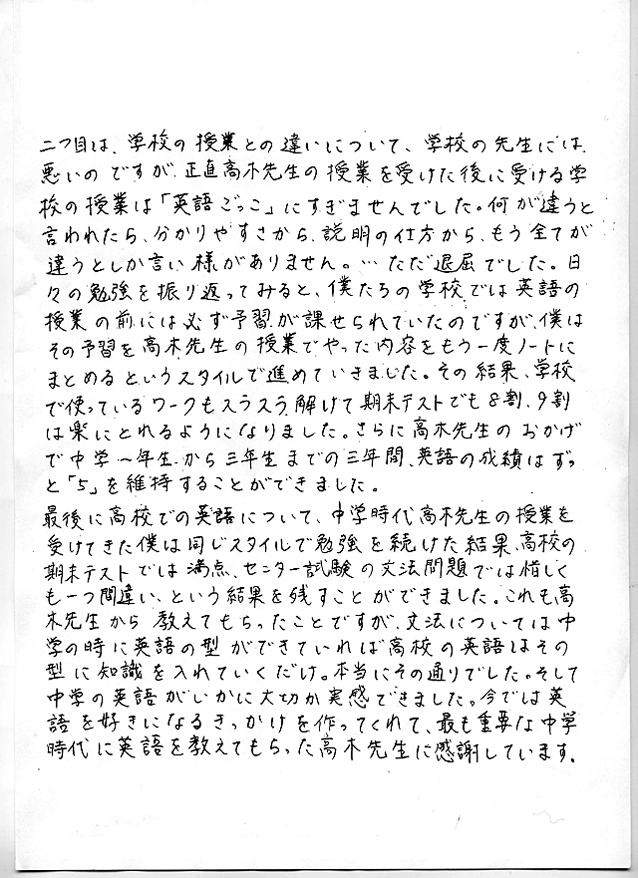 二つ目は、学校の授業との違いについて、学校の先生には
悪いのですが、正直高木先生の授業を受けた後に受ける学
校の授業は「英語ごっこ」にすぎませんでした。何が違うと
言われたら、分かりやすさから、説明の仕方から、もう全てが
違うとしか言い様がありません。…ただ退屈でした。日
々の勉強を振り返ってみると、僕たちの学校では英語の
授業の前には必ず予習が課せられていたのですが、僕は
その予習を高木先生の授業でやった内容をもう一度ノートに
まとめるというスタイルで進めていきました。その結果、学校
で使っているワークもスラスラ解けて期末テストでも8割、9割
は楽にとれるようになりました。さらに高木先生のおかげ
で中学一年生から三年生までの三年間、英語の成績はずっ
と「5」を維持することができました。
最後に高校での英語について、中学時代高木先生の授業を
受けてきた僕は同じスタイルで勉強を続けた結果、高校の
期末テストでは満点、センター試験の文法問題では惜しく
も一つ間違い、という結果を残すことができました。これも高
木先生から教えてもらったことですが、文法については中
学の時に英語の型ができていれば高校の英語はその
型に知識を入れていくだけ。本当にその通りでした。そして
中学の英語がいかに大切か実感できました。今では英
語を好きになるきっかけを作ってくれて、最も重要な中学
時代に英語を教えてもらった高木先生に感謝しています。